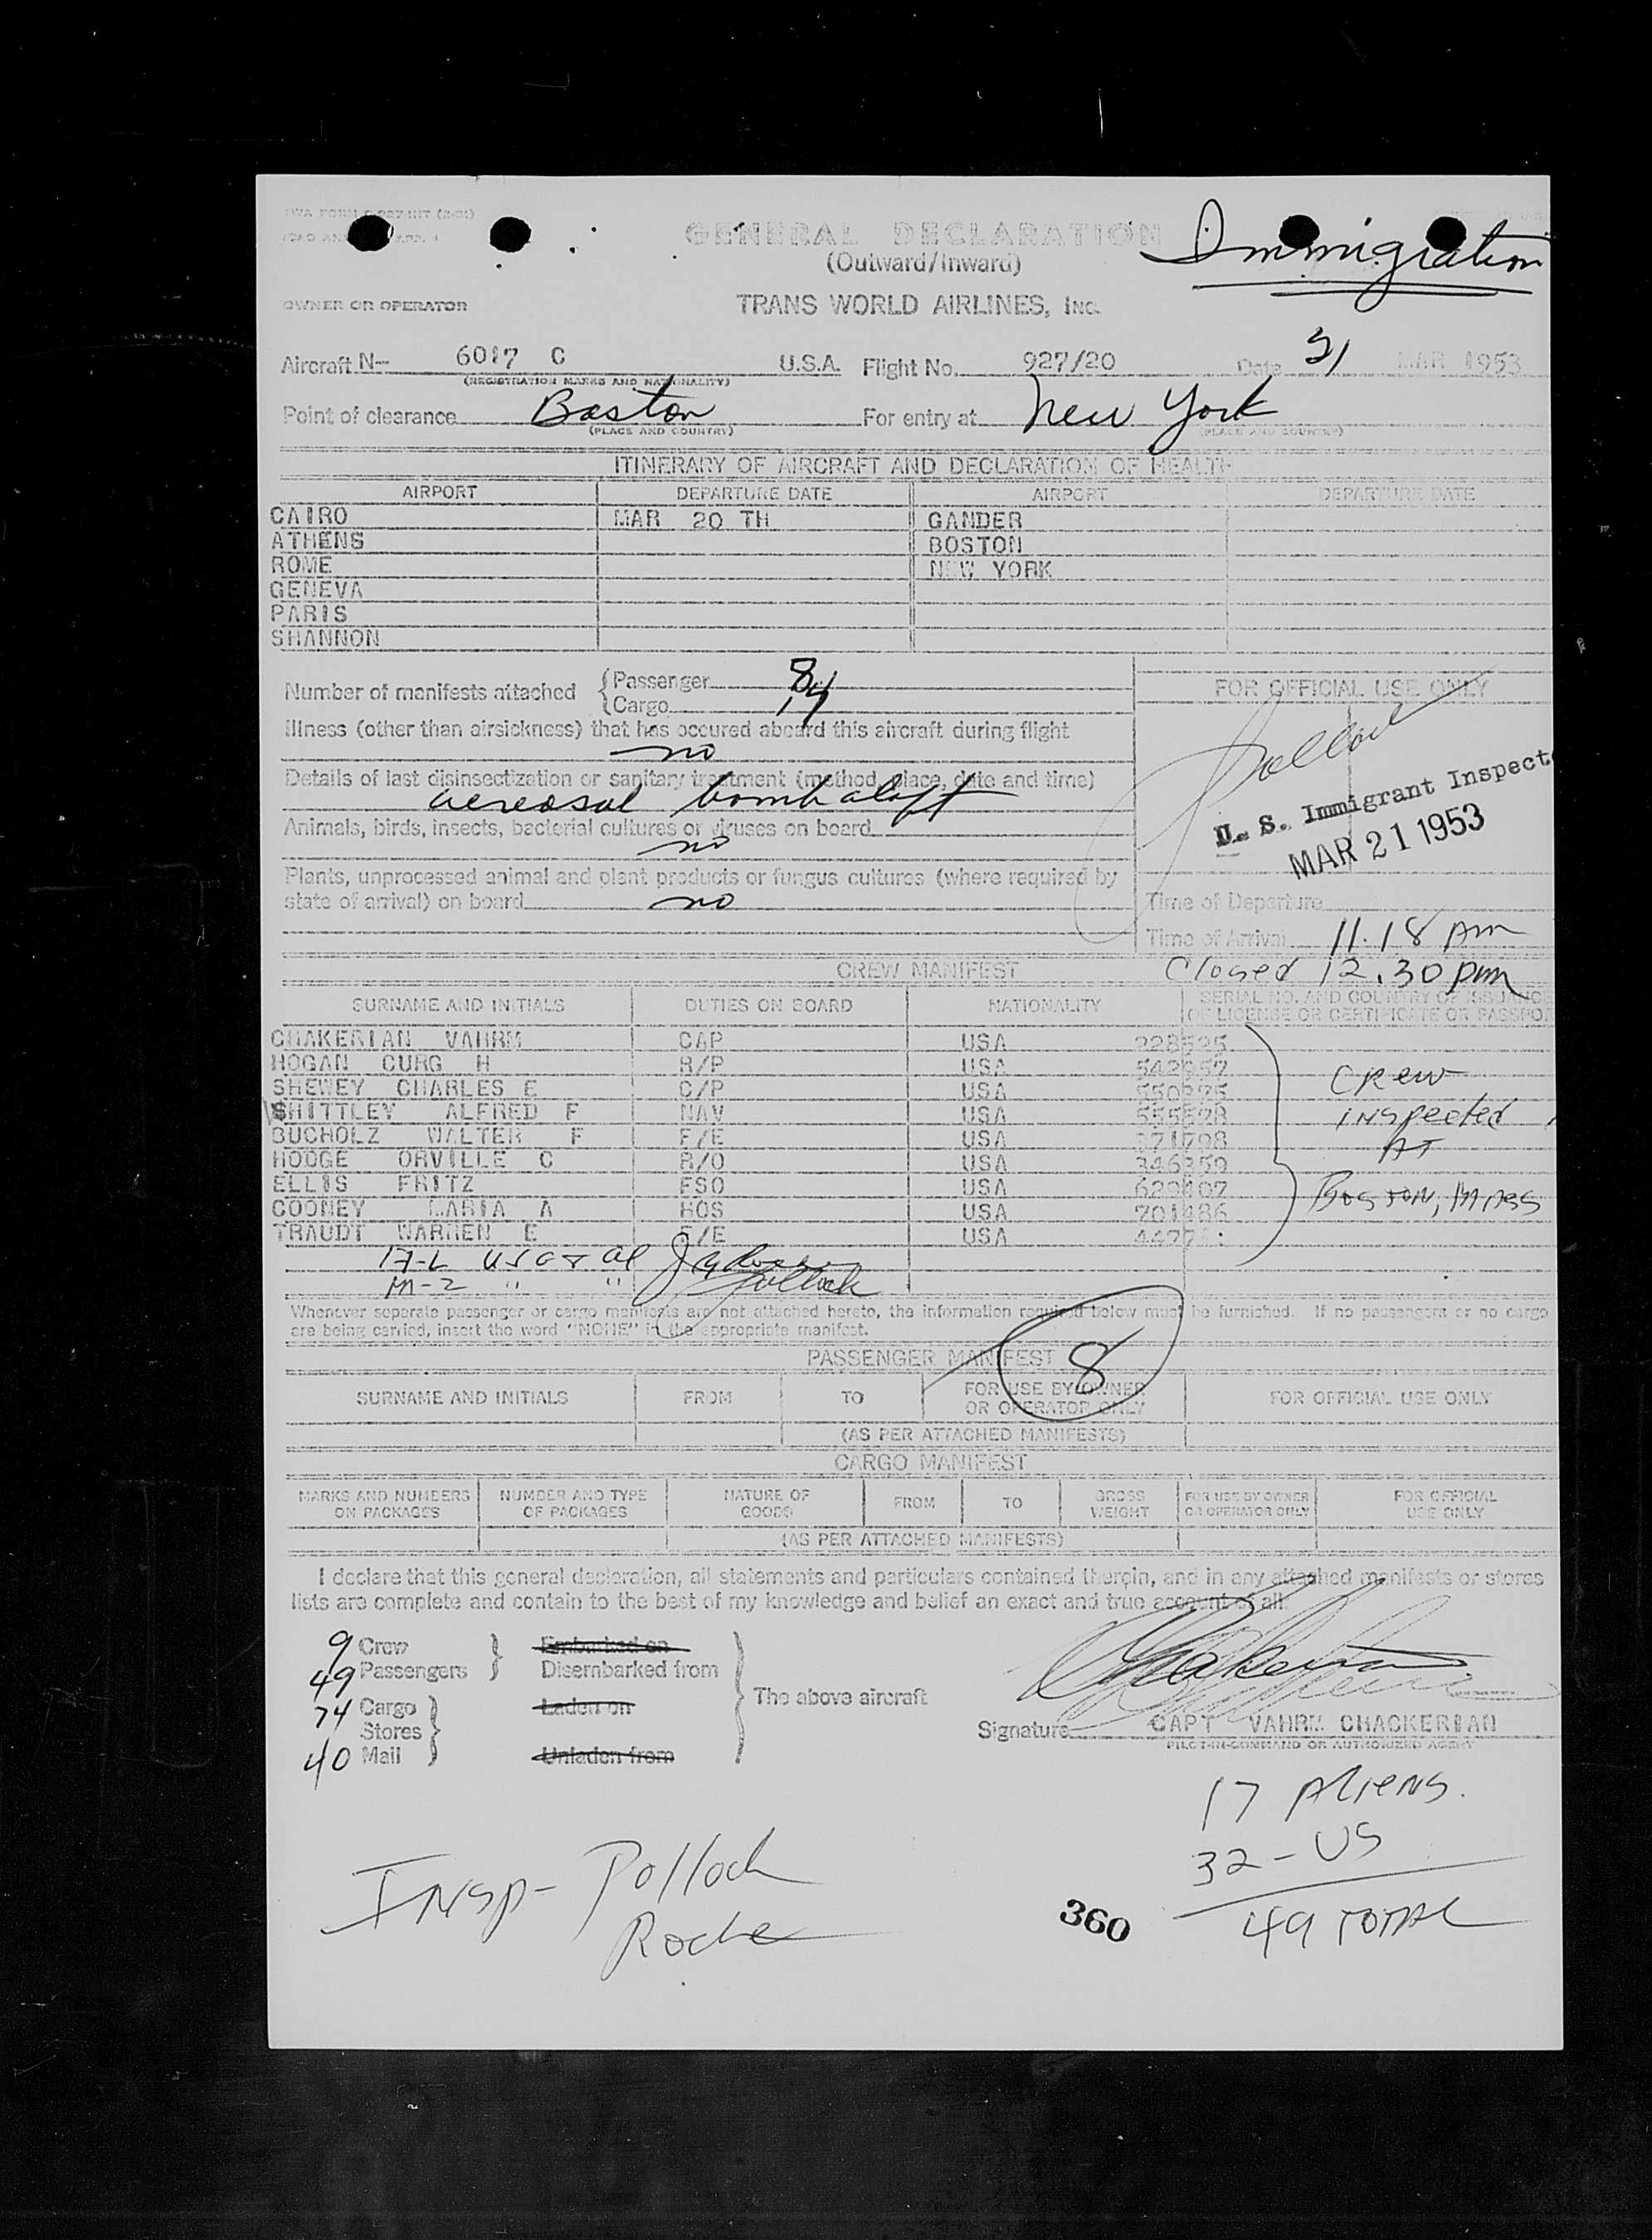 GENERAL DECLARATION
(Outward/Inward)
Immigration
OWNER OR OPERATOR
TRANS WORLD AIRLINES, INC.
Aircraft N- 6017 C U.S.A. Flight No. 927/20 Date 21 MAR 1953
(REGISTRATION MARKS AND NATIONALITY)
Point of clearance Boston For entry at New York
(PLACE AND COUNTRY) (PLACE AND COUNTRY)
ITINERARY OF AIRCRAFT AND DECLARATION OF HEALTH
AIRPORT DEPARTURE DATE AIRPORT DEPARTURE DATE
CAIRO MAR 20 TH GANDER
ATHENS BOSTON
ROME NEW YORK
GENEVA
PARIS
SHANNON
Number of manifests attached Passenger 8
Cargo 14
FOR OFFICIAL USE ONLY
Illness (other than airsickness) that has occured aboard this aircraft during flight
no
Details of last disinsectization or sanitary treatment (method, place, date and time)
aereosol bomb aloft
Animals, birds, insects, bacterial cultures or viruses on board
no
Plants, unprocessed animal and plant products or fungus cultures (where required by
state of arrival) on board no
Pollock
U. S. Immigrant Inspect
MAR 21 1953
Time of Departure
Time of Arrival 11.18 Am
Closed 12.30 pm
CREW MANIFEST
SURNAME AND INITIALS DUTIES ON BOARD NATIONALITY SERIAL NO. AND COUNTRY OF ISSUANCE
OF LICENSE OR CERTIFICATE OR PASSPO
CHAKERIAN VAHRM CAP USA
HOGAN CURG H R/P USA
SHEWEY CHARLES E C/P USA
SHITTLEY ALFRED F NAV USA
BUCHOLZ WALTER F F/E USA
HODGE ORVILLE C R/O USA 346359
ELLIS FRITZ FSO USA
COONEY MARIA A HOS USA 701486
TRAUDT WARREN E F/E USA
Crew
inspected
AT
Boston, Mass
17-L
M-2 " " Pollock
Whenever separate passenger or cargo manifests are not attached hereto, the information required below must be furnished. If no passengers or no cargo
are being carried, insert the word "NONE" in the appropriate manifest.
PASSENGER MANIFEST 8
SURNAME AND INITIALS FROM TO FOR USE BY OWNER
OR OPERATOR ONLY FOR OFFICIAL USE ONLY
(AS PER ATTACHED MANIFESTS)
CARGO MANIFEST
MARKS AND NUMBERS
ON PACKAGES NUMBER AND TYPE
OF PACKAGES NATURE OF
GOODS FROM TO GROSS
WEIGHT FOR USE BY OWNER
OR OPERATOR ONLY FOR OFFICIAL
USE ONLY
(AS PER ATTACHED MANIFESTS)
I declare that this general declaration, all statements and particulars contained therein, and in any attached manifests or stores
lists are complete and contain to the best of my knowledge and belief an exact and true account of all
9 Crew Embarked on
49 Passengers Disembarked from
74 Cargo Laden on
Stores
40 Mail Unladen from
The above aircraft
Signature CAPT VAHRM CHACKERIAN
PILOT-IN-COMMAND OR AUTHORIZED AGENT
17 Aliens.
32-US
49 TOTAL
Insp- Pollock
Roche
360